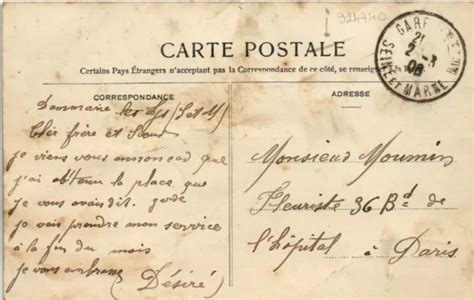 924740
CARTE POSTALE
Certains Pays Étrangers n'acceptant pas la Correspondance de ce côté, se renseigner
CORRESPONDANCE
ADRESSE
GARE
21
08
SEINE ET MARNE
Dammarie les Lys (S et M)
frère et
je viens vous annoncer que
j'ai obtenu la place que
je vous avais dit.
vais prendre mon service
à la fin du mois
je vous embrasse
Désiré
Monsieur Moumin
Fleuriste 36 Bd de
l'hôpital à Paris